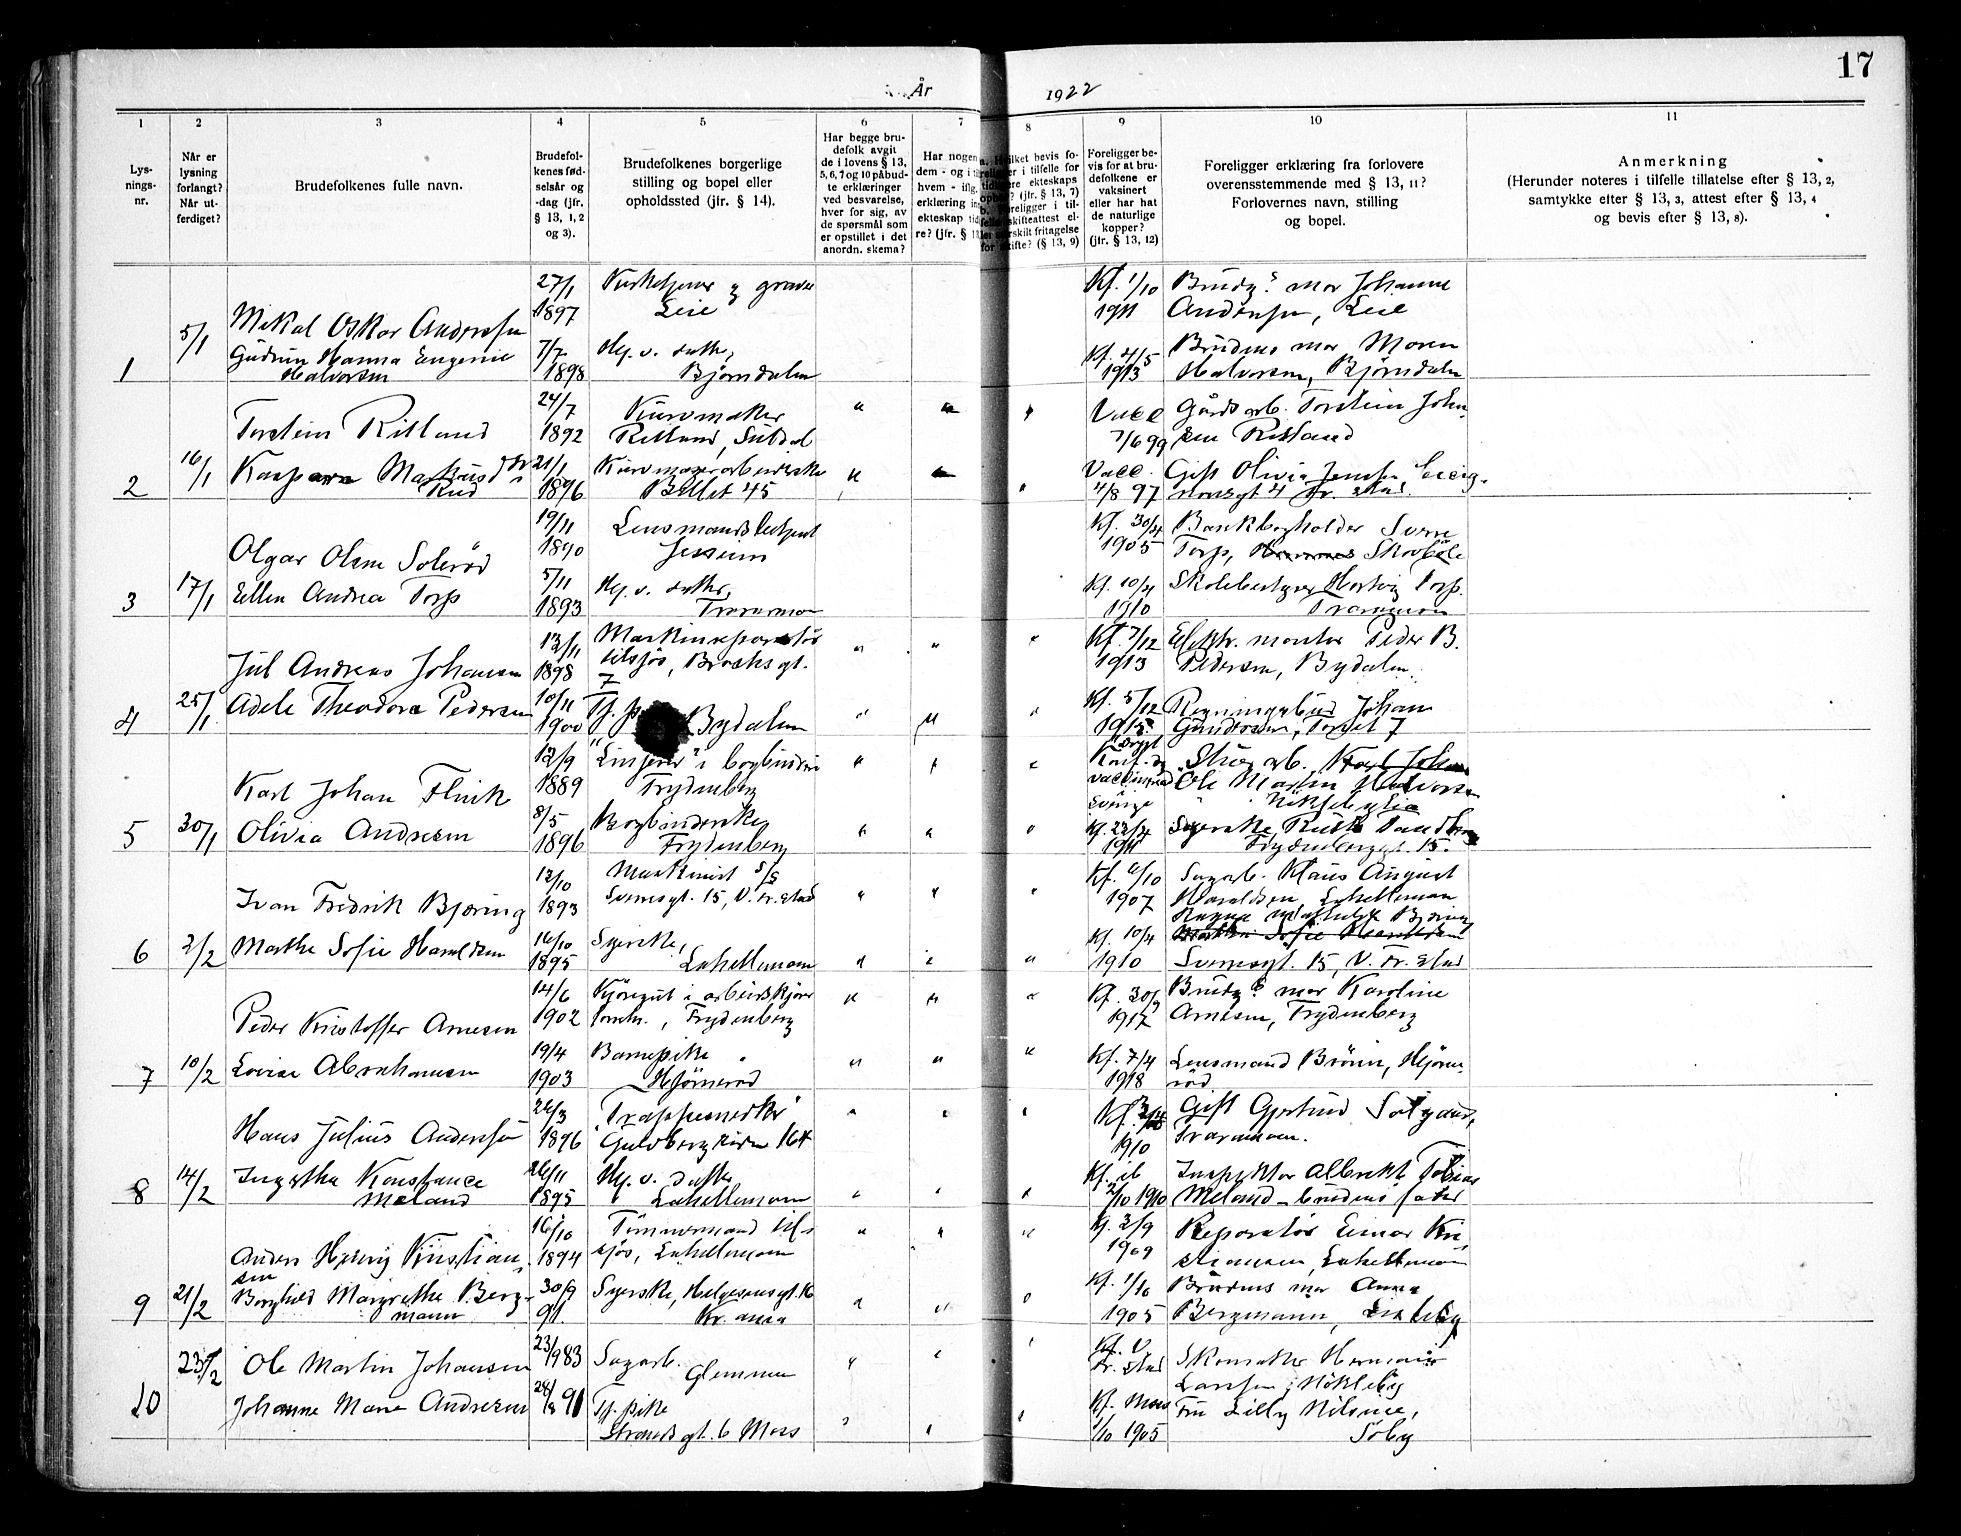 17
År 1922
1 2 3 4 5 6 7 8 9 10 11
Lys-
nings-
nr.
Når er
lysning
forlangt?
Når ut-
ferdiget?
Brudefolkenes fulle navn.
Brudefol-
kenes fød-
selsår og
-dag (jfr.
§ 13, 1, 2
og 3).
Brudefolkenes borgerlige
stilling og bopel eller
opholdssted (jfr. § 14).
Har begge bru-
defolk avgit
de i lovens § 13,
5, 6, 7 og 10 påbud-
te erklæringer
ved besvarelse,
hver for sig, av
de spørsmål som
er opstillet i det
anordn. skema?
Har nogen
dem - og i
hvem - iflg.
erklæring
ekteskap tid
re? (jfr. § 13
bevis fo-
i tilfelle for
ekteskaps
? (jfr. § 13, 7)
b. Foreligger i til-
skifteattest el-
særskilt fritagelse
for skifte? (§ 13, 9)
Foreligger be-
vis for at bru-
defolkene er
vaksinert
eller har hat
de naturlige
kopper?
(jfr. § 13, 12)
Foreligger erklæring fra forlovere
overensstemmende med § 13, 11?
Forlovernes navn, stilling
og bopel.
Anmerkning
(Herunder noteres i tilfelle tillatelse efter § 13, 2,
samtykke efter § 13, 3, attest efter § 13, 4
og bevis efter § 13, 8).
27/1 Kirketjener og graver Kf. 1/10 Brudg.s mor Johanne
5/1 Mikal Oskar Andersen 1897 Leie 1911 Andersen, Leie
Gudrun Hanna Eugenie 7/7 Hj. v. datter, Kf. 4/5 Brudens mor Maren
1 Halvorsen 1898 Bjørndalen 1913 Halvorsen, Bjørndalen
24/7 Kurvmaker Vacc Gårdsarb. Torstein John
Torstein Ritland 1892 Ritland, Suldal 7/6 99 sen Ritland
16/1 21/1 Kurvmagerarbeiderske Vacc. Gift Olivia Jensen,
2 Rud 1896 45 4/8 97 4 Fr. stad.
19/11 Lensmandsbetjent Kf. 30/4 Bankbogholder Sverre
Olgar Olsen Solerød 1890 Jessum 1905 Torp, Skovbøle
17/1 5/11 Hj. v. datter, Kf. 10/4 Skolebestyrer Hartvig Torp.
3 Ellen Andrea Torp 1893 Traramoen 1910 Traramoen
12/11 Maskinreparatør Kf. 7/12 Elektr. montør Peder B.
Jul Andreas Johansen 1898 tilsjøs, Brochsgt. 7 1913 Pedersen, Bydalen.
25/1 Adele Theodora Pedersen 10/11 Tj. p Bydalen Kf. 5/12 Regningsbud Johan
4 1900 1915 Gundersen, Torvet 7
12/9 "Linjerer" i bogbinderi Konf. og Karl Johan
Karl Johan Flink 1889 Frydenberg vaccinered Ole Martin Halvorsen
Sverige
30/1 8/5 Bogbinderske Kf. 23/4 Syerske, Ruth Tandberg
5 Olivia Andresen 1896 Frydenberg 1911 Frydenberggt. 15.
12/10 Maskinist S/S Kf. 6/10 Sagarb. Klaus August
Ivan Fredrik Bjæring 1893 Svenesgt. 15, V. Fr. stad 1907 Haraldsen, Lahellemoen
Bjæring
2/2 Marthe Sofie Haraldsen 16/10 Syerske, Kf. 10/4 Marthe Sofie Haraldsen
6 1895 Lahellemoen 1910 Svenesgt. 15, V. Fr. stad
14/6 Kjøregut i arbeidskjører Kf. 30/9 Brudg.s mor Karoline
Peder Kristoffer Arnesen 1902 forretn., Frydenberg 1917 Arnesen, Frydenberg
10/2 19/4 Barnepike Kf. 7/4 Lensmand Brönn, Hjörne-
7 Lovise Abrahamsen 1903 Hjörneröd 1918 röd
26/3 "Trappesnedker" Kf. Gift Gjertrud Solgaard,
Hans Julius Andersen 1896 Guldbergsiden 164 1910 Traramoen.
14/2 Ingertha Konstance 26/11 Hj. v. datter Kf. Inspektør Albrekt Tobias
8 Meland 1895 Lahellemoen 2/10 1910 Meland - brudens fader
16/10 Tømmermand til- Kf. 3/9 Reparatør Einar Kri-
Anders Henry Kristian- 1894 sjös, Lahellemoen 1909 stiansen, Lahellemoen
sen
21/2 Borghild Margrethe Berg- 30/9 Syerske, Helgesensgt. 16 Kf. 1/10 Brudens mor Anna
9 mann 91. Kr.ania 1905 Bergmann, Lisleby
23/2 Ole Martin Johansen 23/1 983 Sagarb. Glemmen Kf. V. Fr. stad Skomaker Hermann
Larsen, Nökleby
Johanne Marie Andresen 91 Tj. pike Kf. Moss Fru Lilly Nilsine,
10 Strandgt. 6 Moss 1/10 1905 Söby